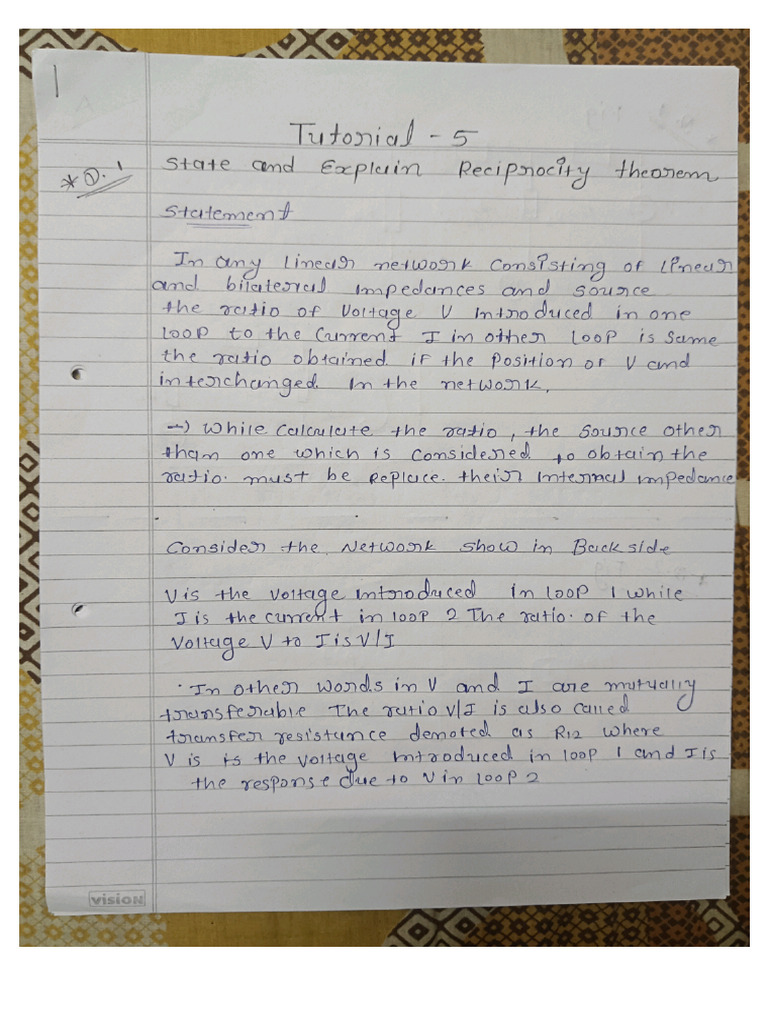 1
Tutorial - 5
* Q. 1 State and Explain Reciprocity theorem
Statement
In any linear network consisting of linear
and bilateral impedances and source
the ratio of voltage V introduced in one
loop to the current I in other loop is same
the ratio obtained if the position of V and
interchanged in the network.
→) While calculate the ratio, the source other
than one which is considered to obtain the
ratio. must be Replace. their internal impedance
Consider the Network show in Back side
V is the voltage introduced in loop 1 while
I is the current in loop 2 The ratio. of the
Voltage V to I is V/I
. In other words in V and I are mutually
transferable The ratio V/I is also called
transfer resistance denoted as R12 where
V is is the voltage introduced in loop 1 and I is
the response due to V in loop 2
vision